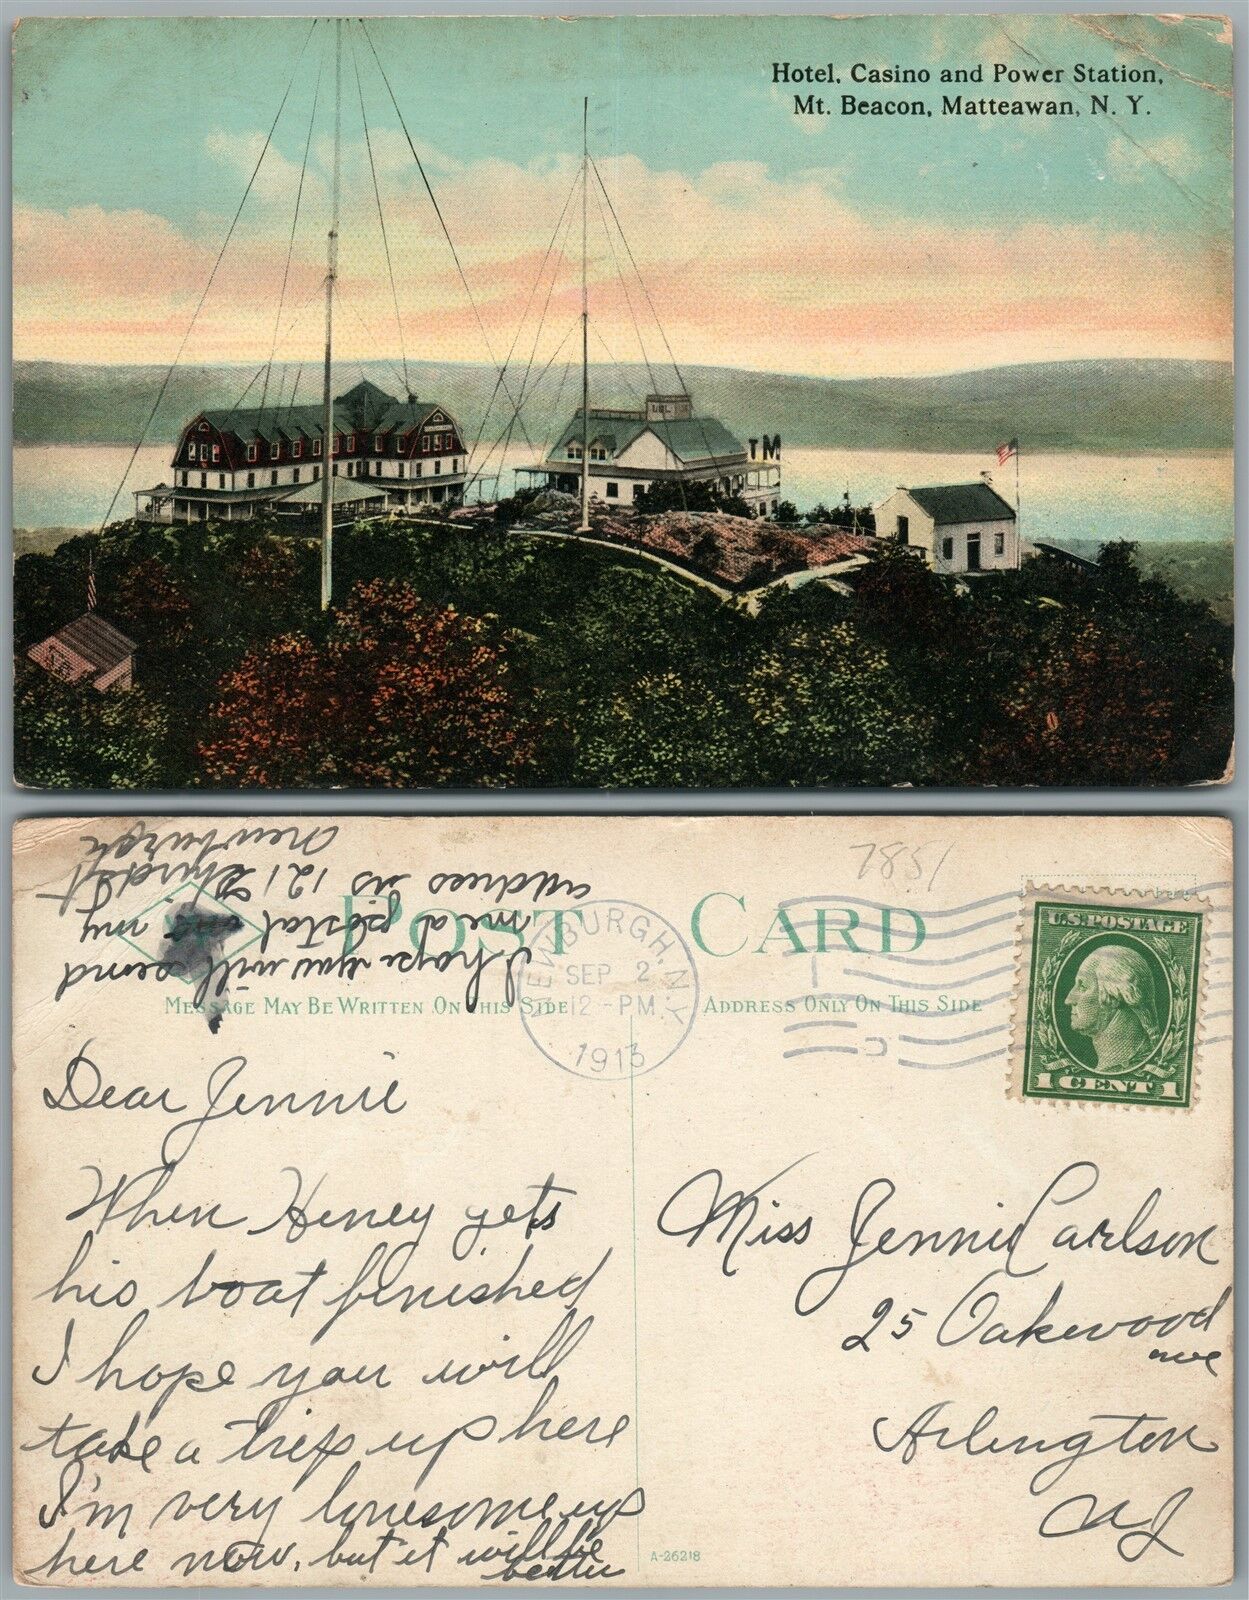 Hotel, Casino and Power Station,
Mt. Beacon, Matteawan, N. Y.
TM
7851
POST CARD
MESSAGE MAY BE WRITTEN ON THIS SIDE
ADDRESS ONLY ON THIS SIDE
NEWBURGH, N.Y.
SEP 2
12 - PM
1913
U.S. POSTAGE
1 CENT 1
Dear Jennie
When Heney gets
his boat finished
I hope you will
take a trip up here
I'm very lonesome up
here now, but it will be
better
I hope you will send
me a postal my
address is 121 Third St
Newburgh
Miss Jennie Carlson
25 Oakwood
ave
Arlington
NJ
A-26218